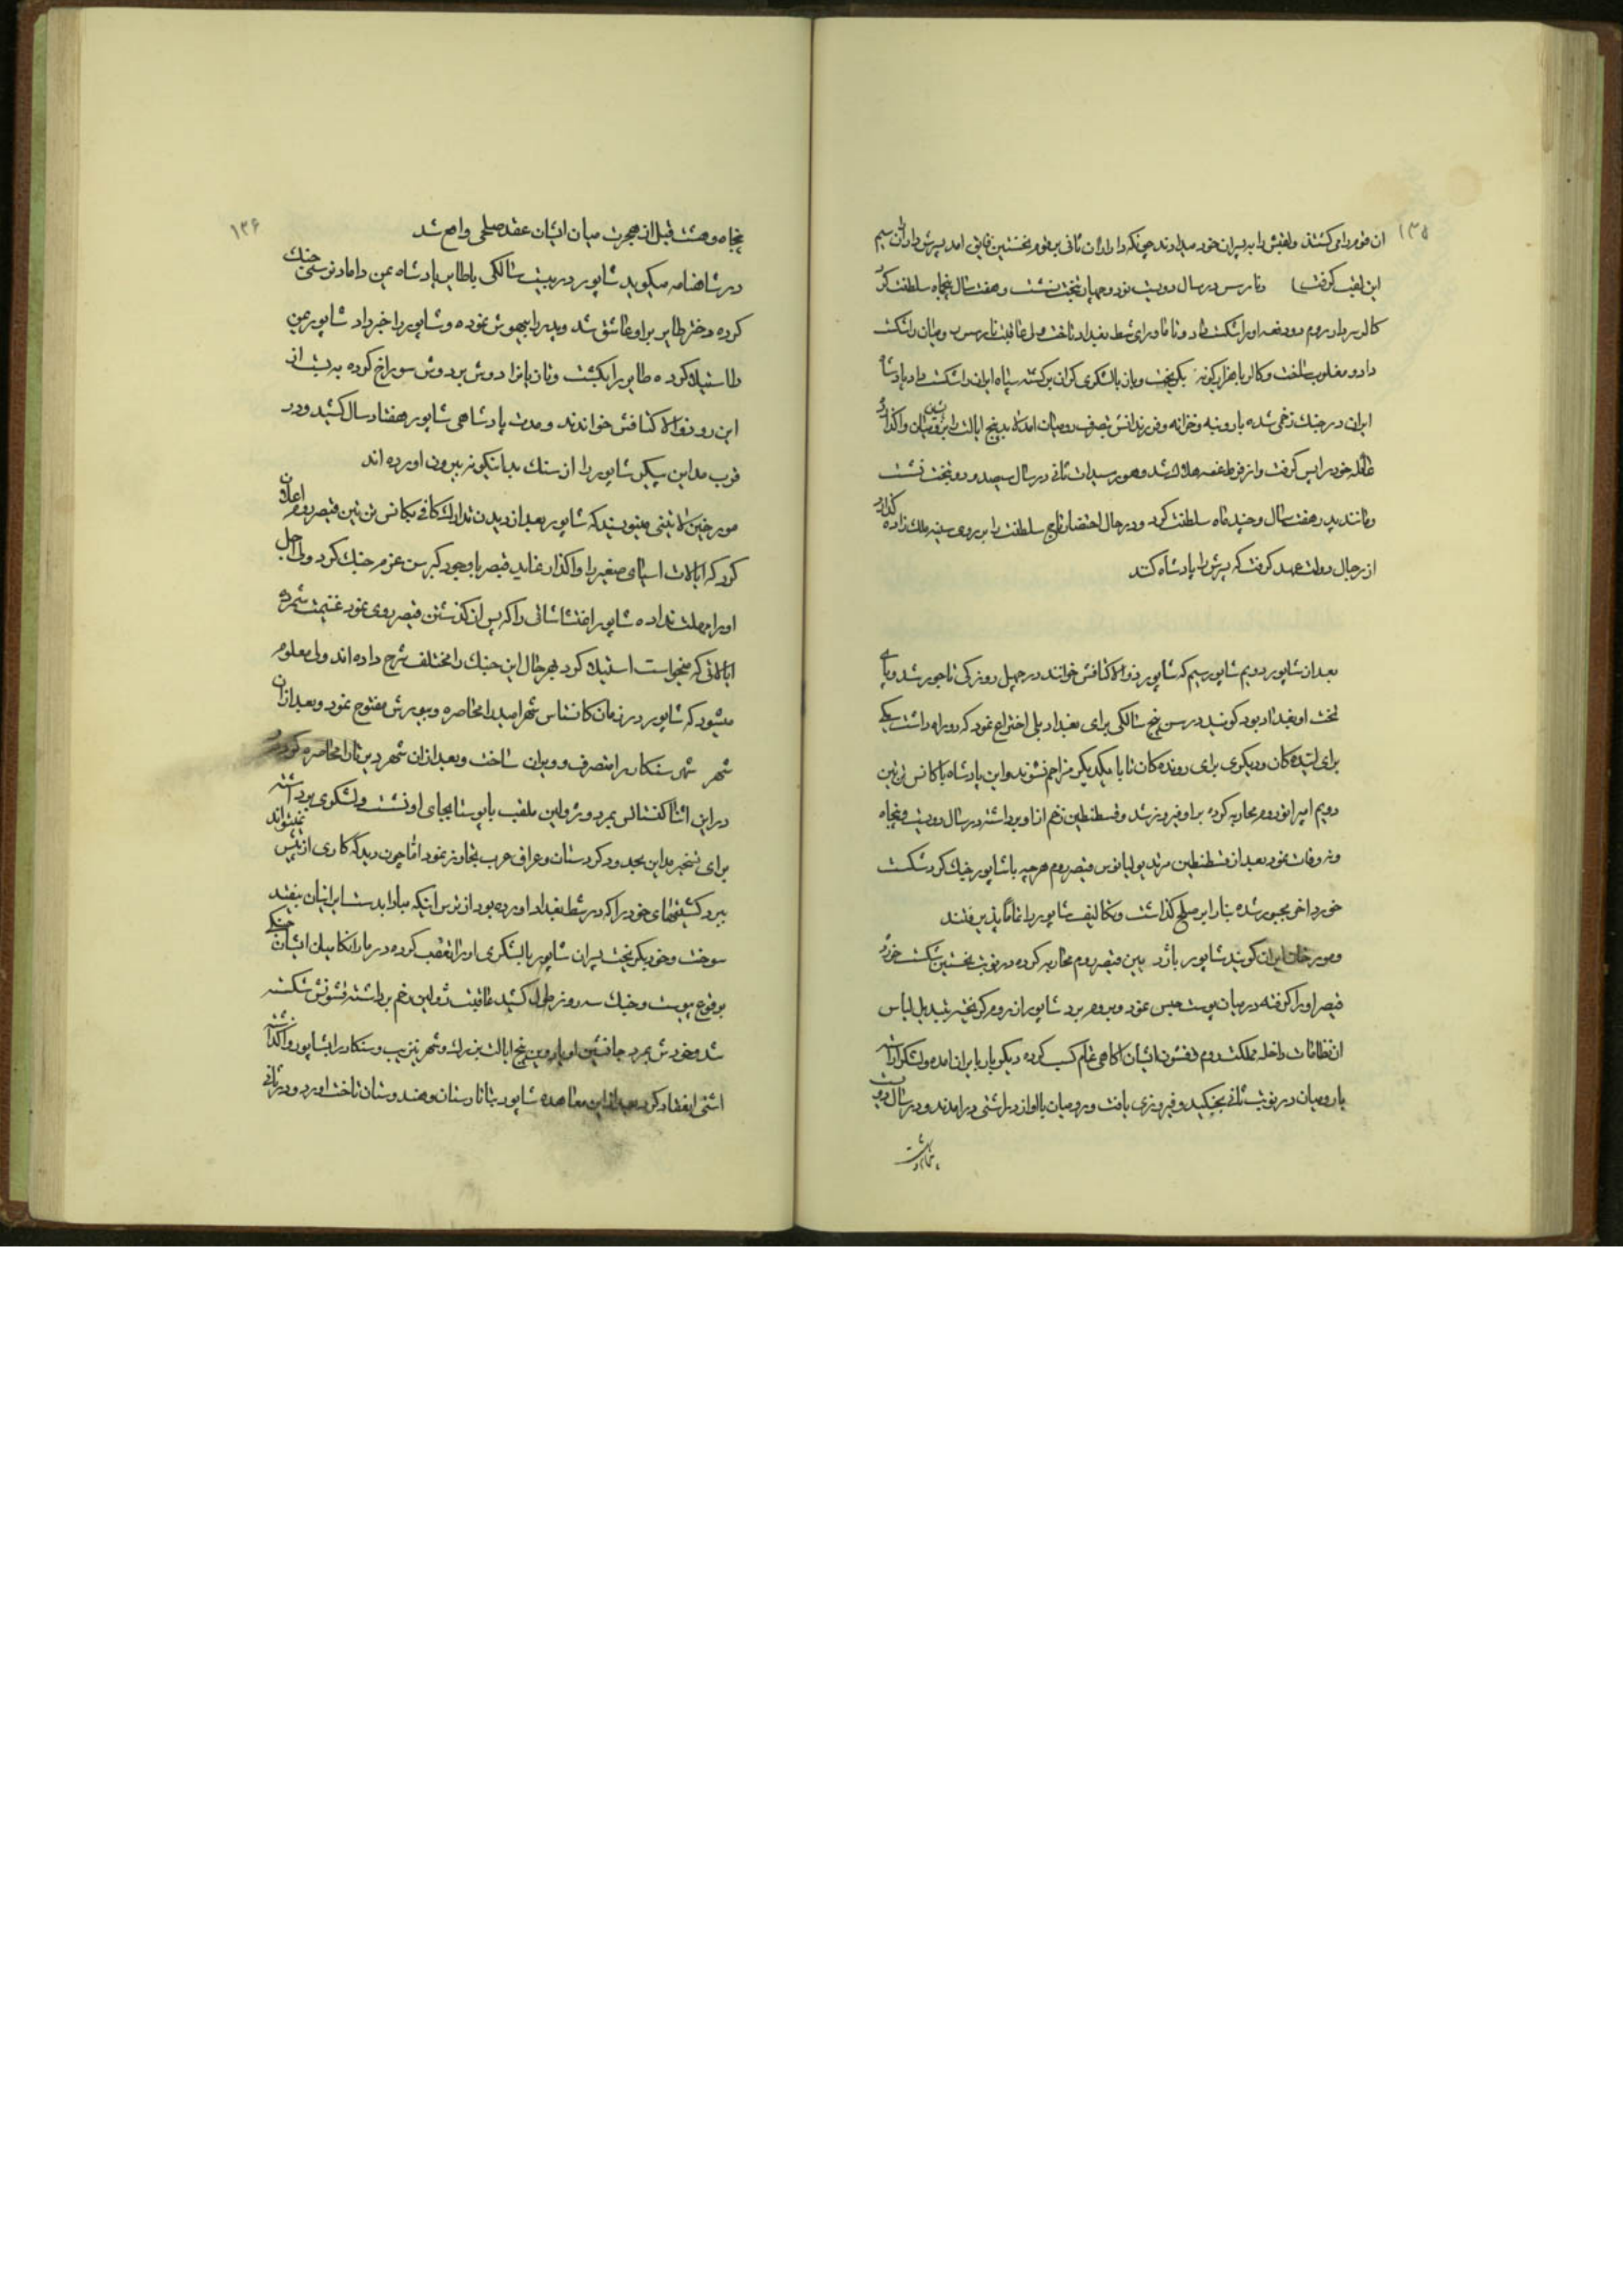 ۱۳۵
ان قوم را می کشتند ولقبش را به پسران خود میدادند چونکه داراران ثانی بر قوم نخستین فایق امد پسرش داراران سیم
این لقب گرفت) ونارسس در سال دویست نود وچهار بتخت نشست وهفت سال پنجاه سلطنت کرد
کالر سردار روم دو دفعه او را شکست داد وتا ماورای شط بغداد تاخت ولی عاقبت نارسس رومیان را شکست
داد و مغلوب ساخت وکالر با هزار گونه بگریخت وباز با لشکری گران برگشته سپاه ایران را شکست داد پادشاه
ایران در جنك زخمی شده بار وبنه وخزانه وفرزندانش بتصرف رومیان امد پنج ایالت را برومیان واگذارد
عائله خود را پس گرفت واز فرط غصه هلاك شد وهورسیدات ثانی در سال سیصد و دو بتخت نشست
ومانند پدر هفت سال وچند ماه سلطنت کرد ودر حال احتضار تاج سلطنت را بر روی سینه ملك زاده گذارد
از رجال دولت عهد گرفت که پسرش را پادشاه کنند
بعد از شاپور دویم شاپور سیم که شاپور ذوالاکتافش خوانند در چهل روزگی تاجور شد وپای
تخت او بغداد بود گویند در سن پنج سالگی برای بغداد پلی اختراع نمود که دو راه داشت یکی
برای ایندگان ودیگری برای روندگان تا با یکدیگر مزاحم نشوند واین پادشاه با کانس تن تین
دویم امپراتور روم محاربه کرده بر او فیروز شد وقسطنطین زخم از او برداشته در سال دویست وپنجاه
و نه وفات نمود بعد از قسطنطین مرتد یولیانوس قیصر روم هرچه با شاپور جنك کرد شکست
خورد اخر مجبور شده بنا را بر صلح گذاشت وتکالیف شاپور را تماما پذیرفتند
ومورخان ایران گویند شاپور با قیصر روم محاربه کرده در نوبت نخستین شکست خورد
قیصر او را گرفته در میان پوست حبس نمود وبروم برد شاپور از روم گریخته بتبدیل لباس
از نظامات داخله مملکت روم وقشون ایشان اگاهی تمام کسب کرده دیگر بار بایران امده ولشکر اراسته
با رومیان در نوبت ثانی بجنگید وفیروزی یافت ورومیان با او از در اشتی درامدند و در سال دویست
۱۳۶
پنجاه وهشت قبل از هجرت میان ایشان عقد صلحی واقع شد
در شاهنامه میگوید شاپور در بیست سالگی با طایر پادشاه یمن داماد نرسی جنك
کرده دختر طایر بر او عاشق شد وپدر را بیهوش نموده وشاپور را خبر داد شاپور یمن
را استیلا کرده طایر را بکشت وتازیان را دوش بر دوش سوراخ کرده به بست از
این رو ذوالاکتافش خواندند ومدت پادشاهی شاپور هفتاد سال کشید ودر
قرب مداین پیکر شاپور را از سنك بدینگونه بیرون اورده اند
مورخین لاتینی مینویسند که شاپور بعد از دیدن تدارك کافی بکانس تن تین قیصر روم اعلان
کرد که ایالات اسیای صغیر را واگذار نماید قیصر با وجود کبر سن عزم جنك کرد ولی اجل
او را مهلت نداده شاپور اغتشاشاتی را که پس از گذشتن قیصر روی نمود غنیمت شمرده
ایالاتی که میخواست استیلا کرد بهر حال این جنك را مختلف شرح داده اند ولی معلوم
میشود که شاپور در زمان کانستانس شهر امید را محاصره وبیورش مفتوح نمود وبعد از ان
شهر سنکار را متصرف وویران ساخت وبعد از ان شهر دیرتا را محاصره کرد
در این اثنا کنستانس بمرد وژولین ملقب باپوستا بجای او نشست ولشکری بود اراسته
برای تسخیر مداین بحدود کردستان وعراق عرب تجاوز نمود اما چون دید که کاری از پیش نمیتواند
ببرد کشتیهای خود را که در شط بغداد اورده بود از ترس اینکه مبادا بدست ایرانیان بیفتد
سوخت وخود بگریخت پسران شاپور با لشکری او را تعقب کرده در مارانکا میان ایشان جنگی
بوقوع پیوست وجنك سه روز طول کشید عاقبت ژولین زخم برداشته قشونش شکسته
شد وخودش بمرد جانشین او یاروین پنج ایالت بزرك وشهر نزیب وسنکار را بشاپور واگذاشته
اشتی انعقاد کرد بعد از این معاهده شاپور بتاتارستان وهندوستان تاخت اورد ودر ثانی